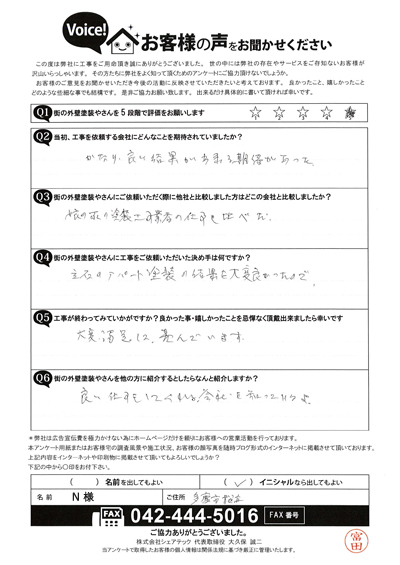 Voice!
お客様の声をお聞かせください
この度は弊社に工事をご用命頂き誠にありがとうございました。世の中には弊社の存在やサービスをご存知ないお客様が
沢山いらっしゃいます。その方たちに弊社をよく知って頂くためのアンケートにご協力頂けないでしょうか。
お客様のご意見をお聞かせいただき今後の活動に反映させていただきたいと考えております。良かったこと、嬉しかったこと
どのような些細な事でも結構です。是非ご協力お願い致します。出来るだけ具体的に書いて頂ければ幸いです。
Q1 街の外壁塗装やさんを5段階で評価をお願いします
Q2 当初、工事を依頼する会社にどんなことを期待されていましたか?
かなり、良い結果が出来る期待があった。
Q3 街の外壁塗装やさんにご依頼いただく際に他社と比較しました方はどこの会社と比較しましたか?
他の塗装工事業者の仕事を比べた
Q4 街の外壁塗装やさんに工事をご依頼いただいた決め手は何ですか?
アパート塗装の結果を大変良かったので、
Q5 工事が終わってみていかがですか?良かった事・嬉しかったことを忌憚なく頂戴出来ましたら幸いです
大変満足し、喜んでいます。
Q6 街の外壁塗装やさんを他の方に紹介するとしたらなんと紹介しますか?
良い仕事をしてくれる会社を
＊弊社は広告宣伝費を極力かけない為にホームページだけを頼りにお客様への営業活動を行っております。
本アンケート用紙またはお客様宅の調査風景や施工状況、お客様の顔写真を随時ブログ形式のインターネットに掲載させて頂いております。
上記内容をインターネットや印刷物に掲載させて頂いてもよろしいでしょうか?
下記の中から〇印をお付下さい。
( ) 名前を出してもよい ( ✓ ) イニシャルなら出してもよい
名前 N 様 ご住所 多摩市
FAX 042-444-5016 FAX 番号
ご協力ありがとうございました。
株式会社シェアテック 代表取締役 大久保 誠二
当アンケートで取得したお客様の個人情報は関係法規に基づき厳正に管理いたします。
富田